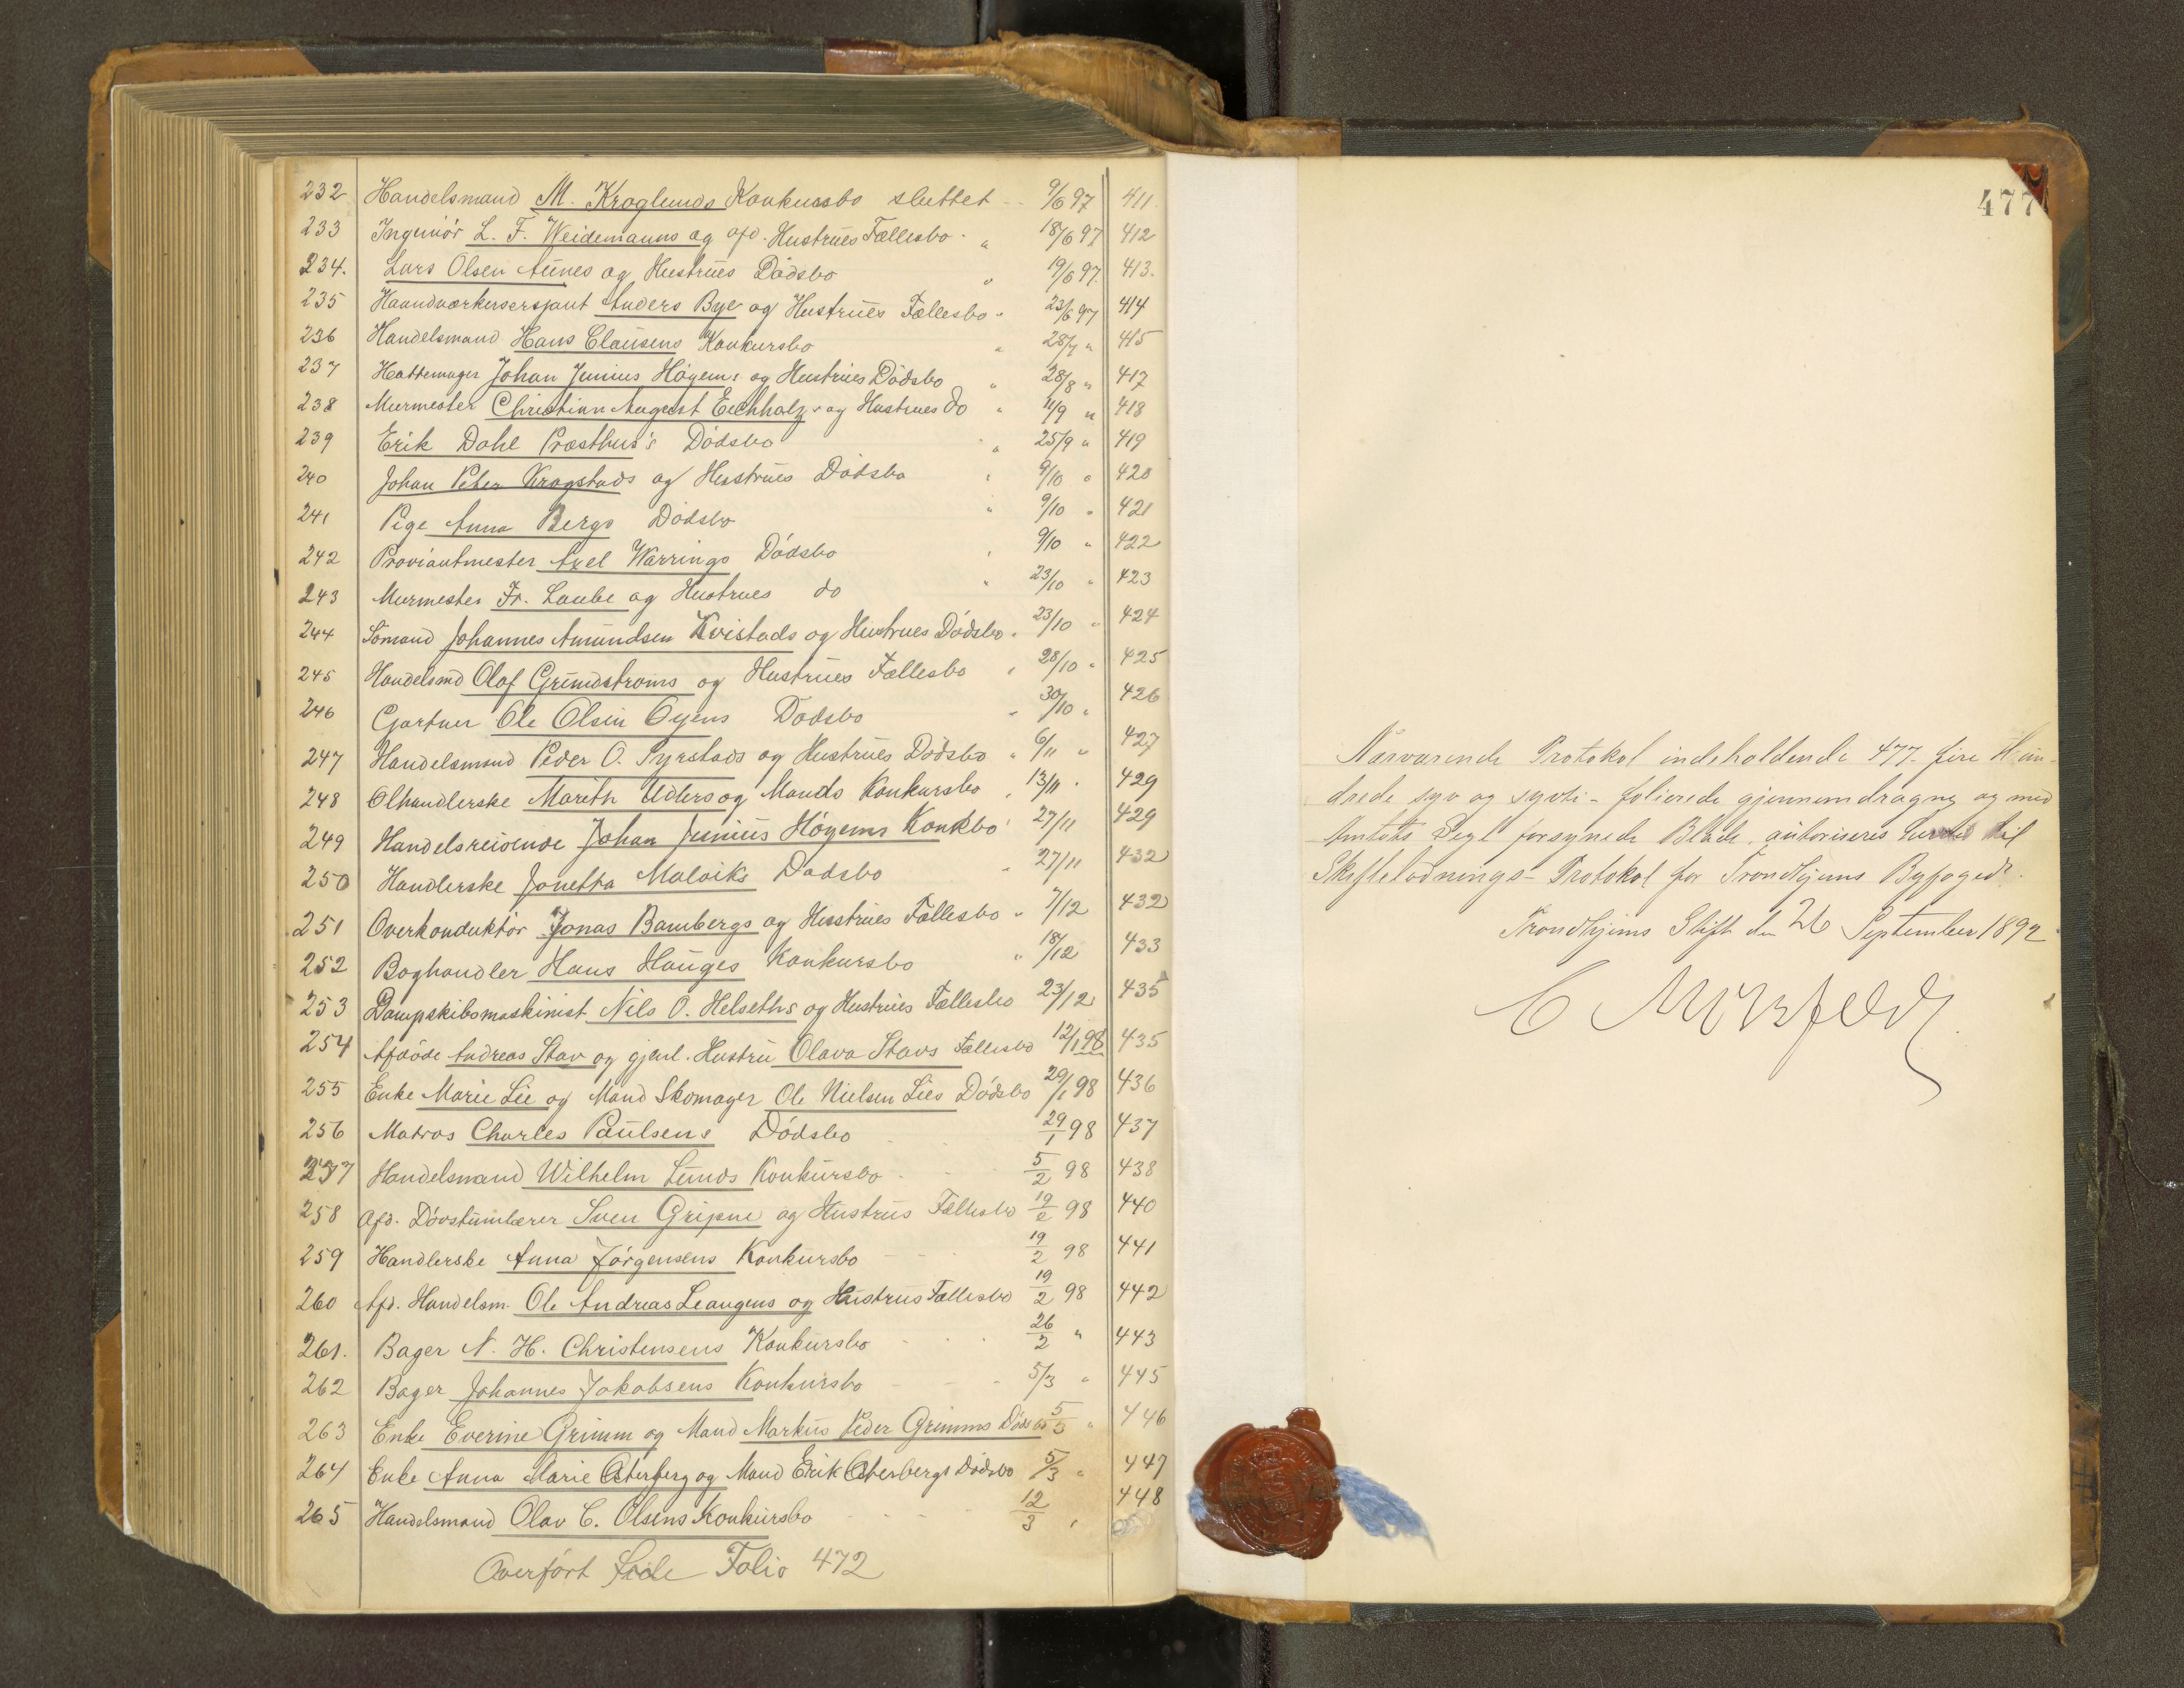 232 Handelsmand M. Kroglunds Konkursbo sluttet - 9/6 97 411.
233 Ingeniör L. F. Weidemanns og afd. Hustrues Fællesbo - " 18/6 97 412
234. Lars Olsen Aunes og Hustrues Dödsbo " 19/6 97. 413.
235 Haandværkersersjant Anders Bye og Hustrues Fællesbo " 23/6 97 414
236 Handelsmand Hans Clausens Konkursbo " 28/7 " 415
237 Hattemager Johan Junius Höyems og Hustrues Dödsbo " 28/8 " 417
238 Murmester Christian August Eichholz's og Hustrues do " 11/9 " 418
239 Erik Dahl Præsthus's Dödsbo " 25/9 " 419
240 Johan Peter Krogstads og Hustrues Dödsbo " 9/10 " 420
241 Pige Anna Bergs Dödsbo " 9/10 " 421
242 Proviantmester Axel Warrings Dödsbo " 9/10 " 422
243 Murmester Fr. Laube og Hustrues do " 23/10 " 423
244 Sömand Johannes Amundsen Kvistads og Hustrues Dödsbo " 23/10 " 424
245 Handelsmd Olaf Grundströms og Hustrues Fællesbo " 28/10 " 425
246 Gartner Ole Olsen Öyens Dödsbo " 30/10 " 426
247 Handelsmand Peder O. Syrstads og Hustrues Dödsbo " 6/11 " 427
248 Ölhandlerske Marith Udlers og Mands Konkursbo " 13/11 " 429
249 Handelsreisende Johan Junius Höyems Konkbo " 27/11 429
250 Handlerske Jonetta Malviks Dödsbo " 27/11 432
251 Overkonduktör Jonas Bambergs og Hustrues Fællesbo " 7/12 432
252 Boghandler Hans Hauges Konkursbo " 18/12 433
253 Dampskibsmaskinist Nils O. Helseths og Hustrues Fællesbo 23/12 435
254 Afdöde Andreas Stav og gjenl. Hustru Olava Stavs Fællesbo 12/1 98 435
255 Enke Marie Lie og Mand Skomager Ole Nielsen Lies Dödsbo 29/1 98 436
256 Matros Charles Paulsens Dödsbo 29/1 98 437
257 Handelsmand Wilhelm Lunds Konkursbo - 5/2 98 438
258 Afd. Dövstumlærer Sven Gripne og Hustrus Fællesbo 19/2 98 440
259 Handlerske Anna Jörgensens Konkursbo - 19/2 98 441
260 Afd. Handelsm. Ole Andreas Leangens og Hustrus Fællesbo 19/2 98 442
261. Bager N. H. Christensens Konkursbo - 26/2 " 443
262 Bager Johannes Jakobsens Konkursbo - 5/3 " 445
263 Enke Everine Grimm og Mand Markus Peder Grimms Dödsbo 5/3 " 446
264 Enke Anna Marie Österberg og Mand Erik Österbergs Dödsbo 5/3 " 447
265 Handelsmand Olav C. Olsens Konkursbo - 12/3 " 448
Overfört Folio 472
477
Nærværende Protokol indeholdende 477 - fire Hun-
drede syv og syvti - folierede gjennemdragne og med
Amtets Segl forsynede Blade, autoriseres herved til
Skifteslutnings-Protokol for Trondhjems Byfoged.
Trondhjems Stift den 26 September 1892